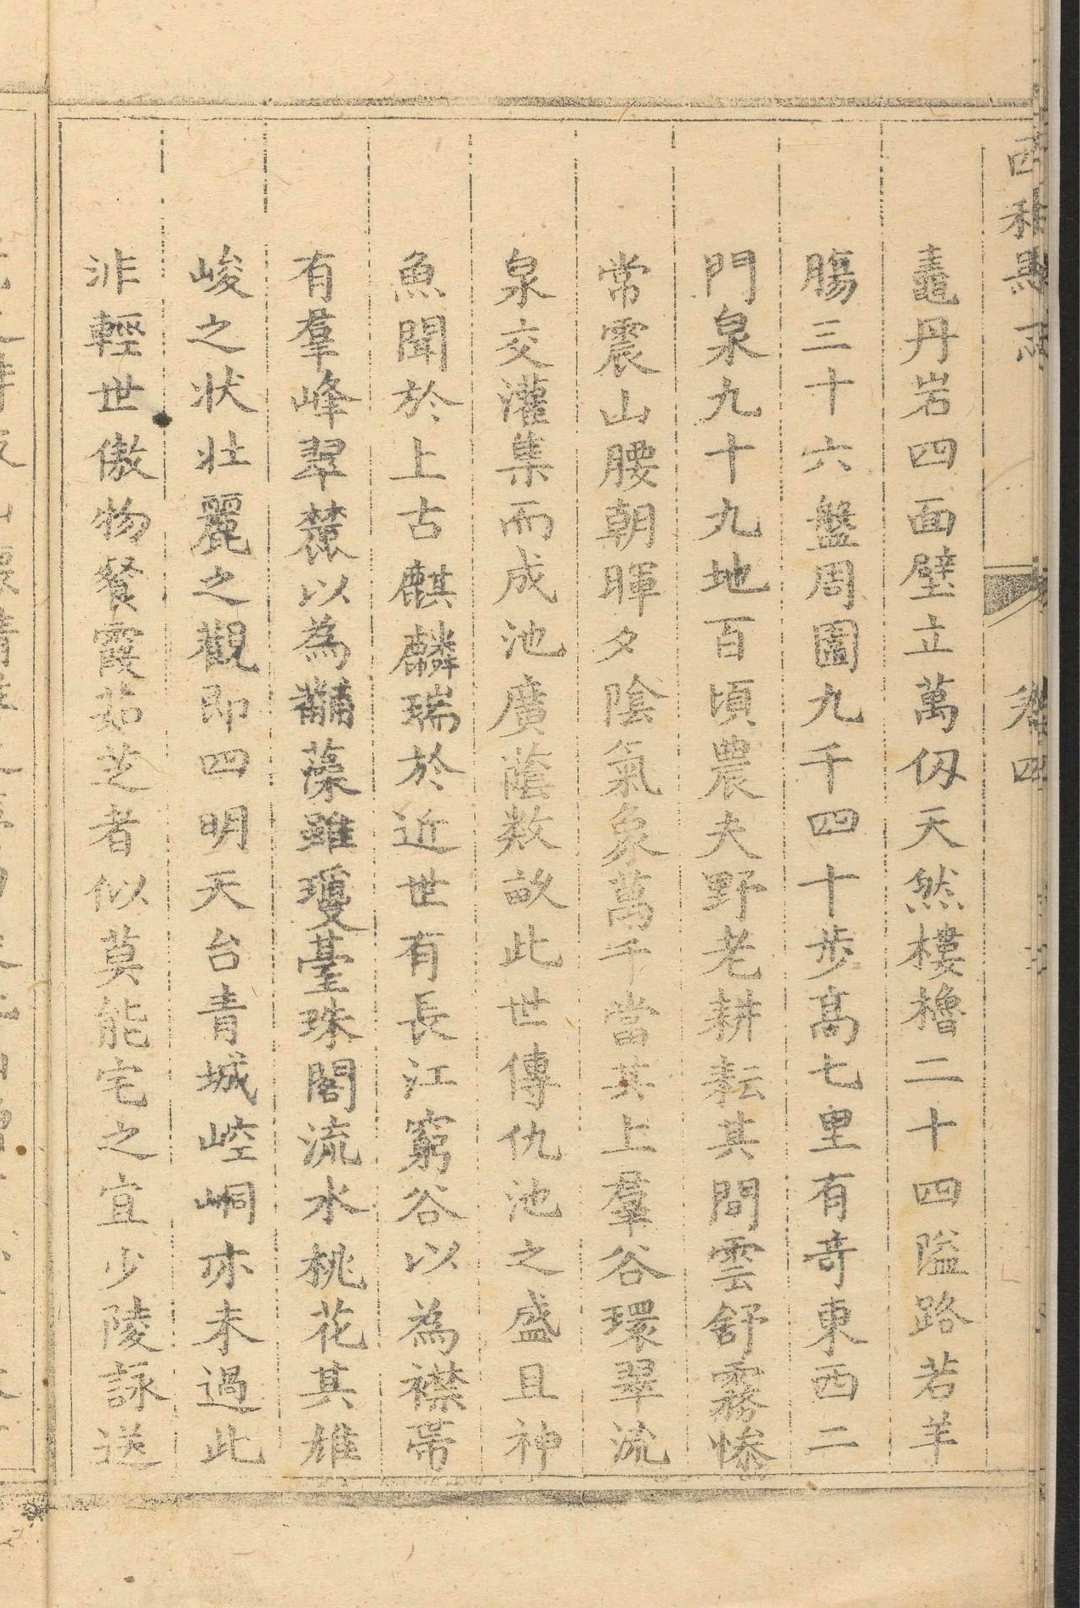 鼇丹岩四面壁立萬仭天然樓櫓二十四隘路若羊
腸三十六盤周圍九千四十步髙七里有竒東西二
門泉九十九地百頃農夫野老耕耘其間雲舒霧慘
常震山腰朝暉夕陰氣象萬千當其上羣谷環翠流
泉交灌集而成池廣蔭数畝此世傳仇池之盛且神
魚聞於上古麒麟瑞於近世有長江窮谷以為襟帶
有羣峰翠麓以為黼藻雖瓊臺珠閣流水桃花其雄
峻之状壮麗之觀即四明天台青城崆峒亦未過此
非輕世傲物餐霞茹芝者似莫能宅之宜少陵詠送
卷四